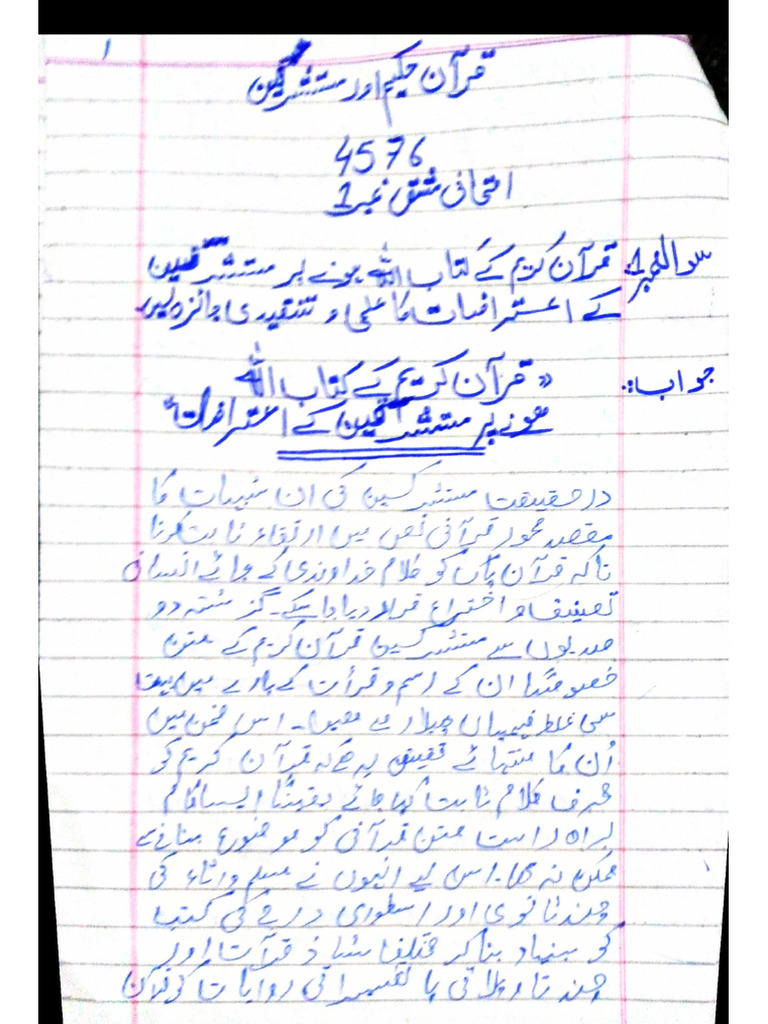 1
قرآن حکیم اور مستشرقین
4576
امتحانی مشق نمبر 1
سوال نمبر 1: قرآن کریم کے کتاب اللہ ہونے پر مستشرقین
کے اعتراضات کا علمی و تنقیدی جائزہ لیں
جواب:- "قرآن کریم کے کتاب اللہ
ہونے پر مستشرقین کے اعتراضات"
درحقیقت مستشرکین کی ان شبہات کا
مقصد محور قرآنی نص میں ارتقاء ثابت کرنا
تاکہ قرآن پاک کو کلام خداوندی کے بجائے انسانی
تصنیف و اختراع قرار دیا جا سکے۔ گزشتہ دو
صدیوں سے مستشرکین قرآن کریم کے متن
خصوصًا ان کے رسم و قرأت کے بارے میں بہت
سی غلط فہمیاں پھیلا رہے ہیں۔ اس ضمن میں
اُن کا منتہائے تحقیق یہ ہے کہ قرآن کریم کو
محرف کلام ثابت کیا جائے یقینًا ایسا کام
براہ راست متن قرآنی کو موضوع بنانے سے
ممکن نہ تھا۔ اس لیے انہوں نے مسلم ورثاء کی
چند ثانوی اور اسطوری درجے کی کتب
کو بنیاد بنا کر مختلف شاذ قرآت اور
چند تاویلاتی یا تفسیراتی روایات کو قرآن